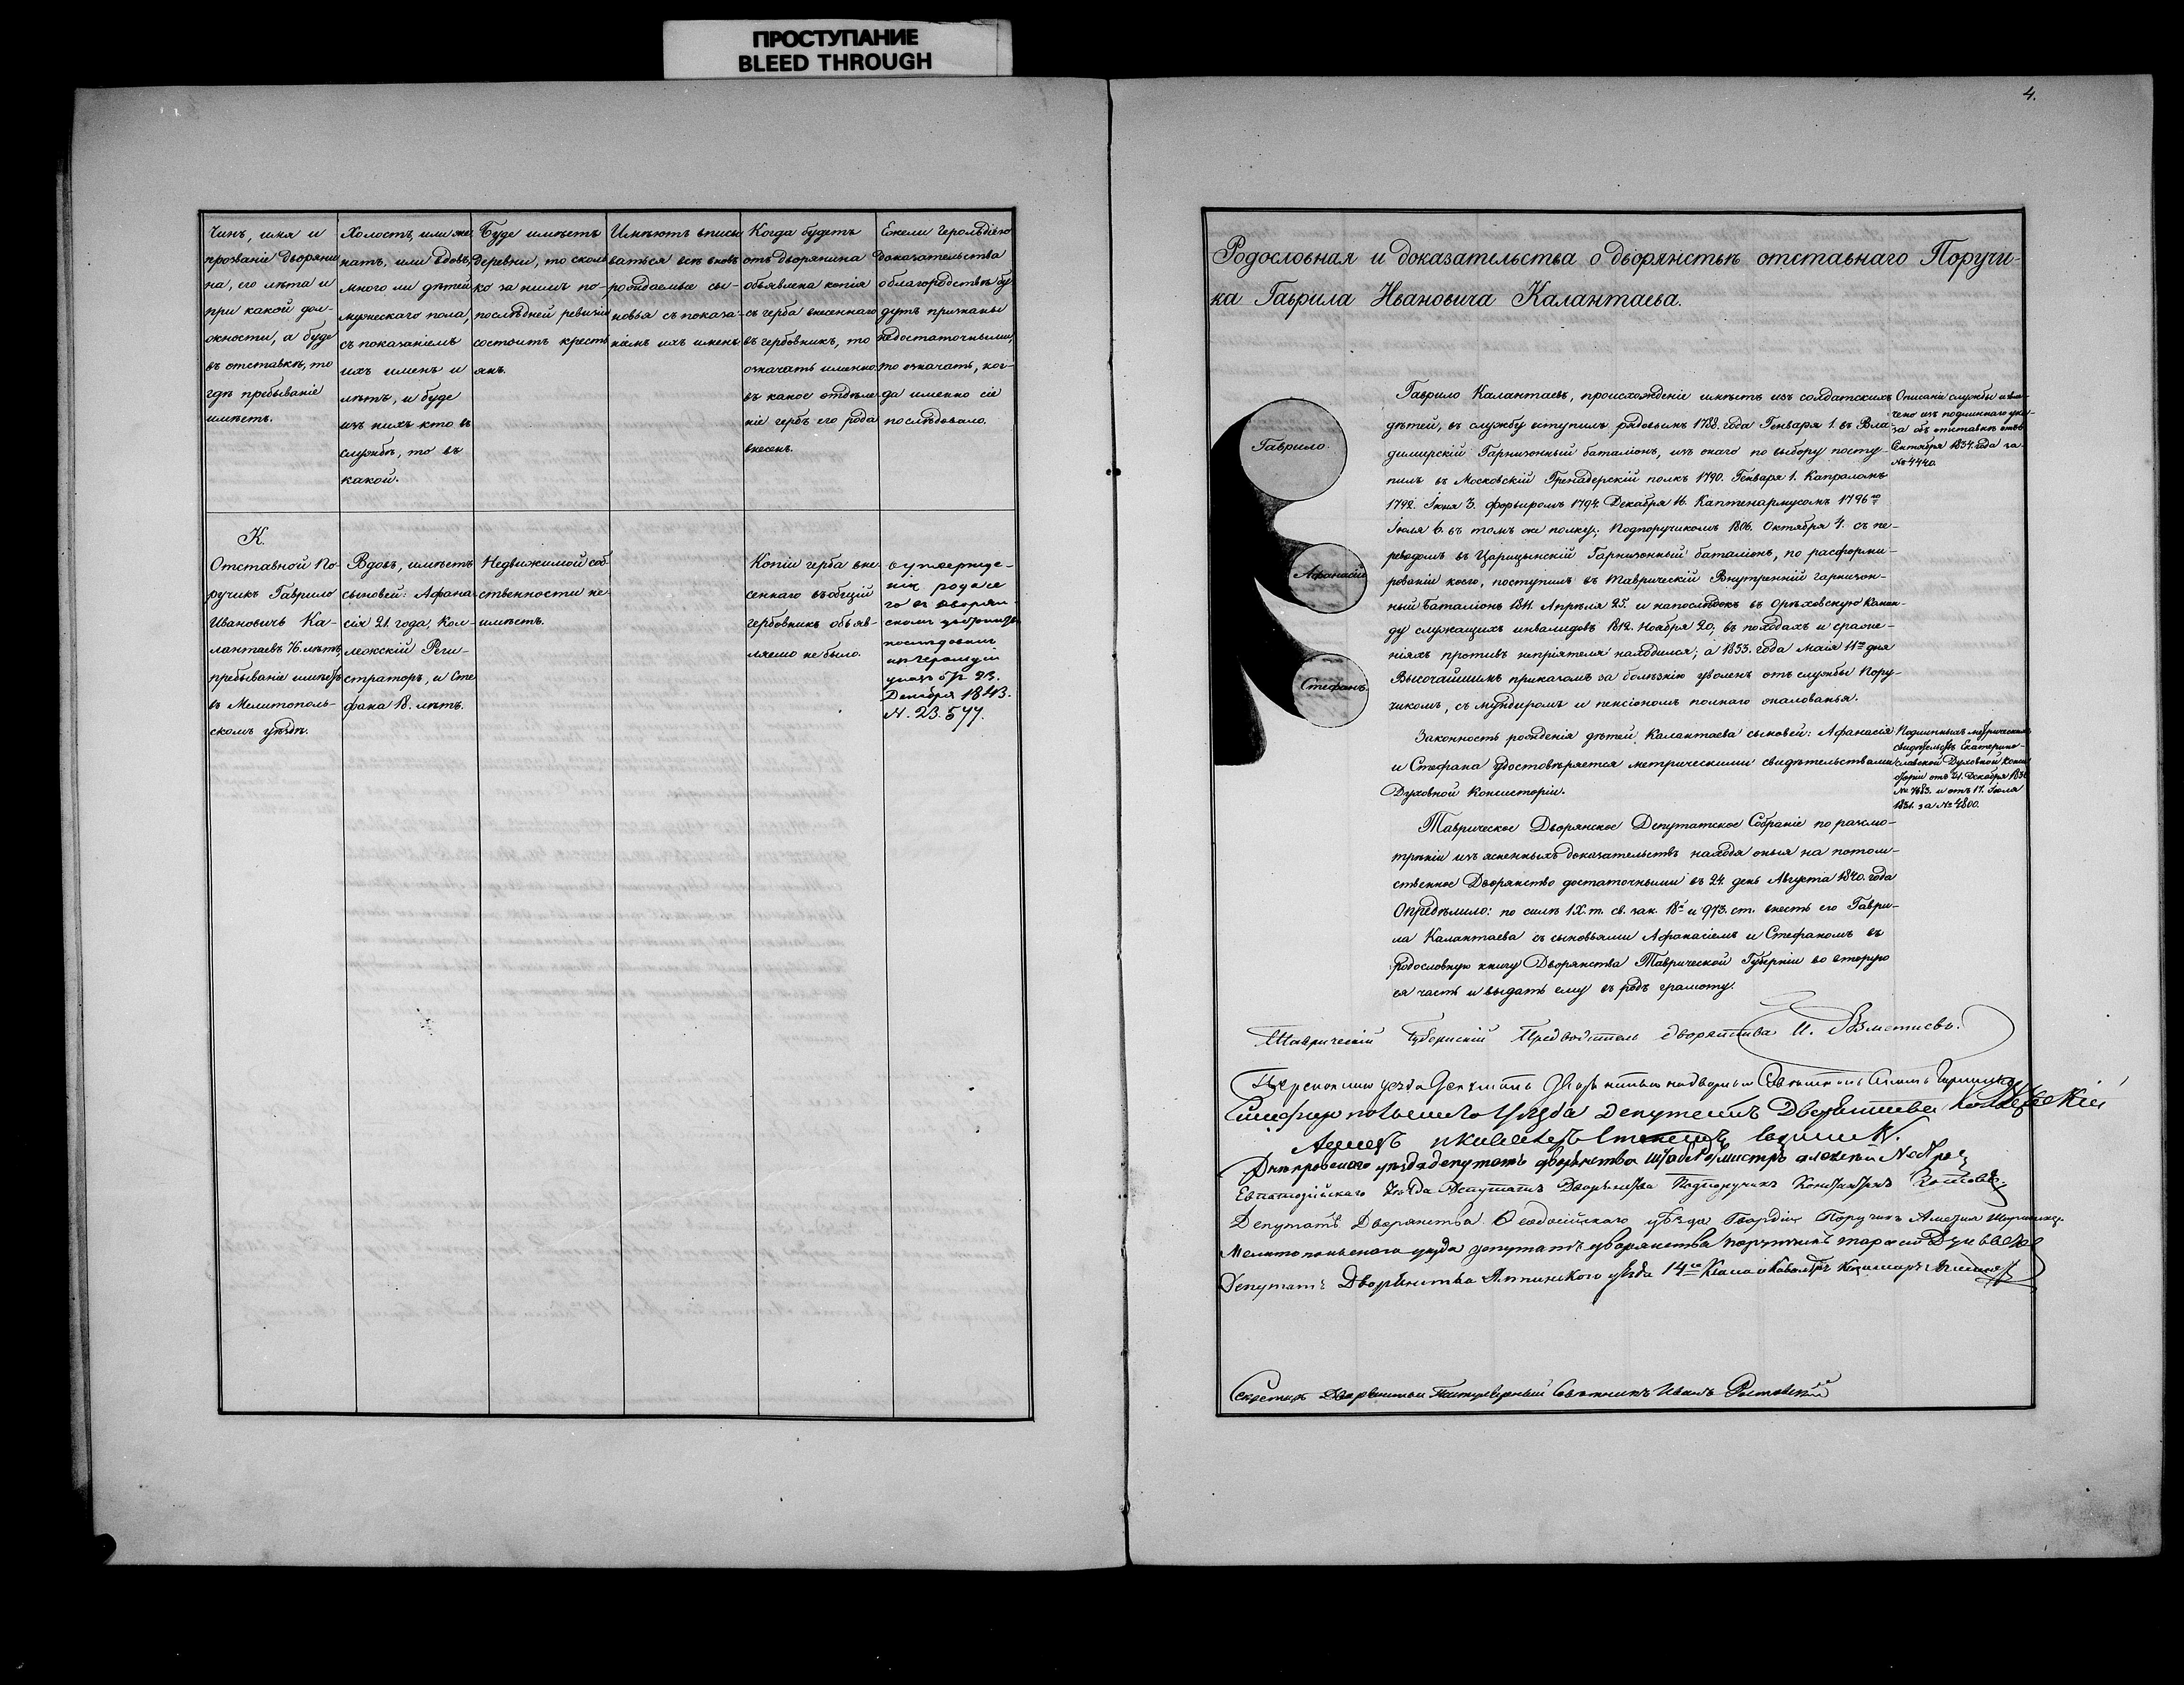 ПРОСТУПАНИЕ
BLEED THROUGH
Чинъ, имя и
прозваніе дворяни
на, его лѣта и
при какой дол-
жности, а буде
въ отставкѣ, то
гдѣ пребываніе
имѣетъ.
Холостъ, или же
натъ, или вдовъ,
много ли дѣтей
мужескаго пола,
съ показаніемъ
ихъ именъ и
лѣтъ, и буде
изъ нихъ кто въ
службѣ, то въ
какой.
Буде имѣетъ
деревни, то сколь
ко за нимъ по-
послѣдней ревизіи
состоитъ кресть
янъ.
Имѣютъ вписы
ваться всѣ вновь
рождаемые сы-
новья съ показа-
ніемъ ихъ именъ
Когда будетъ
отъ дворянина
объявлена копія
съ герба внесеннаго
въ гербовникъ, то
означать именно
въ какое отдѣле
ніе гербъ его рода
внесенъ.
Ежели Герольдіею
доказательства
о благородствѣ бу
дутъ признаны
недостаточными,
то означать, ког-
да именно сіе
послѣдовало.
К.
Отставной По-
ручикъ Гаврило
Ивановичъ Ка-
лантаевъ 76. лѣтъ,
пребываніе имѣетъ
въ Мелитополь-
скомъ уѣздѣ.
Вдовъ, имѣетъ
сыновей: Афана
сія 21. года, Кол-
лежскій Реги-
страторъ, и Сте
фана 18. лѣтъ.
Недвижимой соб
ственности не
имѣетъ.
Копіи герба вне
сеннаго въ общій
гербовникъ объяв-
ляемо не было.
О утвержде-
ніи рода се
го въ дворян-
скомъ достоинствѣ
послѣдовалъ
изъ Герольдіи
указъ отъ 23.
Декабря 1843.
№. 23.577.
4.
Родословная и доказательства о дворянствѣ отставнаго Поручи-
ка Гаврила Ивановича Калантаева.
Гаврило
Афанасій
Стефанъ
Гаврило Калантаевъ, происхожденіе имѣетъ изъ солдатскихъ
дѣтей, въ службу вступилъ рядовымъ 1788. года Генваря 1. въ Вла-
димирскій Гарнизонный баталіонъ, изъ онаго по выбору посту-
пилъ въ Московскій Гренадерскій полкъ 1790. Генваря 1. Капраломъ
1792. Іюня 3. форьиромъ 1794. Декабря 16. Каптенармусомъ 1796го
Іюля 6. въ томъ же полку; Подпоручикомъ 1806. Октября 4. съ пе-
реводомъ въ Царицынскій Гарнизонный баталіонъ, по расформи-
рованіи коего, поступилъ въ Таврическій Внутренній гарнизон-
ный Баталіонъ 1811. Апрѣля 25. и напослѣдокъ въ Орѣховскую Коман-
ду служащихъ инвалидовъ 1812. Ноября 20, въ походахъ и сраже-
ніяхъ противъ непріятеля находился; а 1833. года Маія 11го дня
Высочайшимъ приказомъ за болѣзнію уволенъ отъ службы Пору-
чикомъ, съ мундиромъ и пенсіономъ полнаго жалованья.
Описаніе службы извле-
чено изъ подлиннаго ука-
за объ отставкѣ отъ
Сентября 1834. года за
№ 4440.
Законность рожденія дѣтей Калантаева сыновей: Афанасія
и Стефана удостовѣряется метрическими свидѣтельствами
Духовной Консисторіи.
Подлинныхъ метрическихъ
свидѣтельствъ Екатерино-
славской Духовной Конси
сторіи отъ 21. Декабря
№ 7683. и отъ 17. Іюля
1831. за № 4800.
Таврическое Дворянское Депутатское Собраніе по разсмо-
трѣніи изъясненныхъ доказательствъ находя оныя на потом-
ственное Дворянство достаточными въ 24. день Августа 1840. года
Опредѣлило: по силѣ IX. т. св. зак. 18. и 973. ст. внесть его Гаври-
ла Калантаева съ сыновьями Афанасіемъ и Стефаномъ въ
Родословную книгу Дворянства Таврической Губерніи во вторую
ея часть и выдать ему въ родъ грамоту.
Таврическій Губернскій Предводитель дворянства
уезда Депутатъ надворный Советникъ
Симферопольскаго Уезда Депутатъ Дворянства
Днепровскаго уезда депутатъ дворянства
Евпаторійскаго Уѣзда Депутатъ Дворянства Подпоручикъ Константинъ
Депутатъ Дворянства Ѳеодосійскаго уѣзда Гвардіи Поручикъ
Мелитопольскаго уезда депутатъ дворянства поручикъ
Депутатъ Дворянства Ялтинскаго уѣзда 14го Класа и Кавалеръ
Секретарь Дворянства Титулярный Совѣтникъ Иванъ